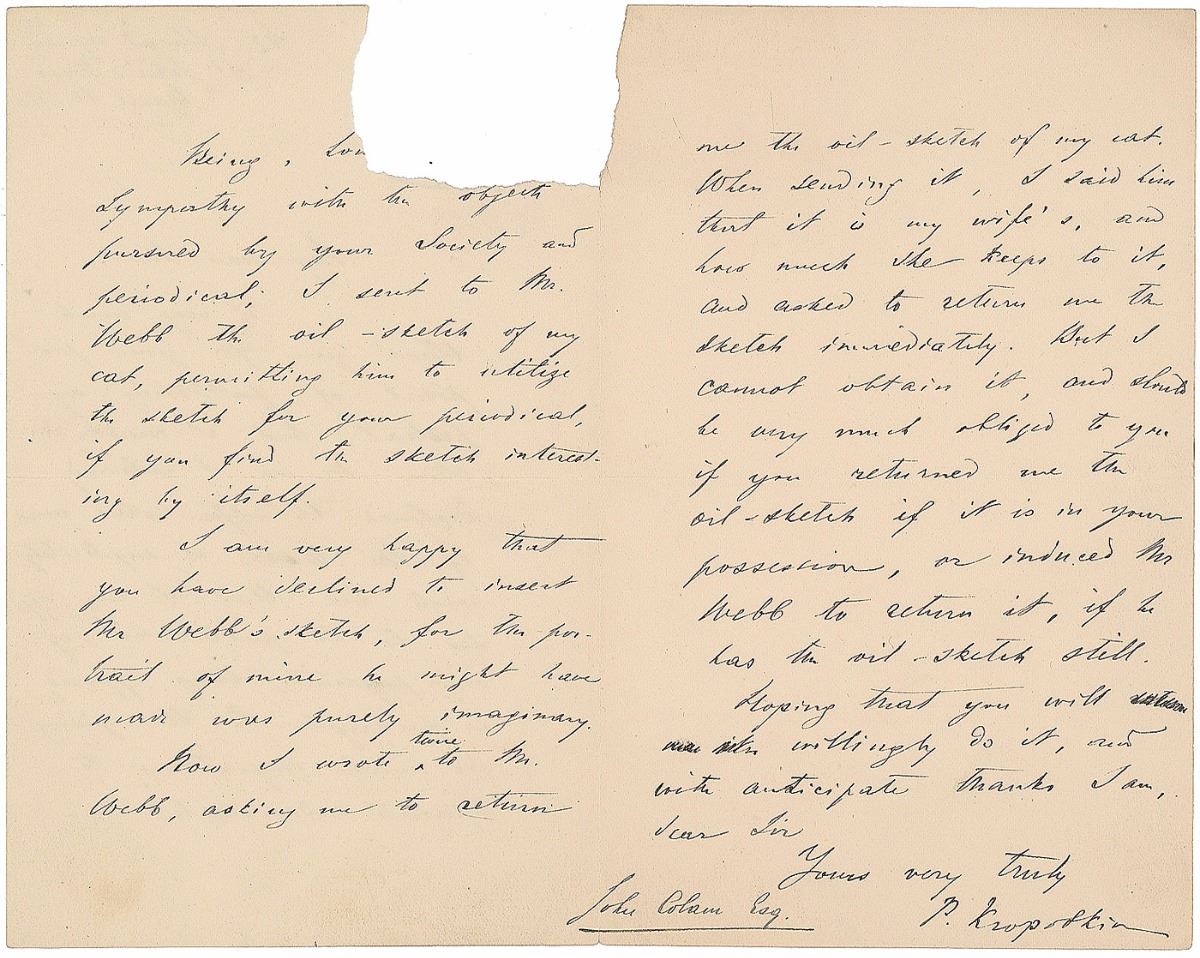 Being,
Sympathy with the objects
pursued by your Society and
periodical, I sent to Mr.
Webb the oil-sketch of my
cat, permitting him to utilize
the sketch for your periodical,
if you find the sketch interest-
ing by itself.
I am very happy that
you have declined to insert
Mr Webb's sketch, for the por-
trait of mine he might have
made was purely imaginary.
Now I wrote twice to Mr.
Webb, asking me to return
me the oil-sketch of my cat.
When sending it, I said him
that it is my wife's, and
how much she keeps to it,
and asked to return me the
sketch immediately. But I
cannot obtain it, and should
be very much obliged to you
if you returned me the
oil-sketch if it is in your
possession, or induced Mr
Webb to return it, if he
has the oil-sketch still.
Hoping that you will
willingly do it, and
with anticipate thanks I am,
dear Sir
Yours very truly
P. Kropotkin
John Colam Esq.